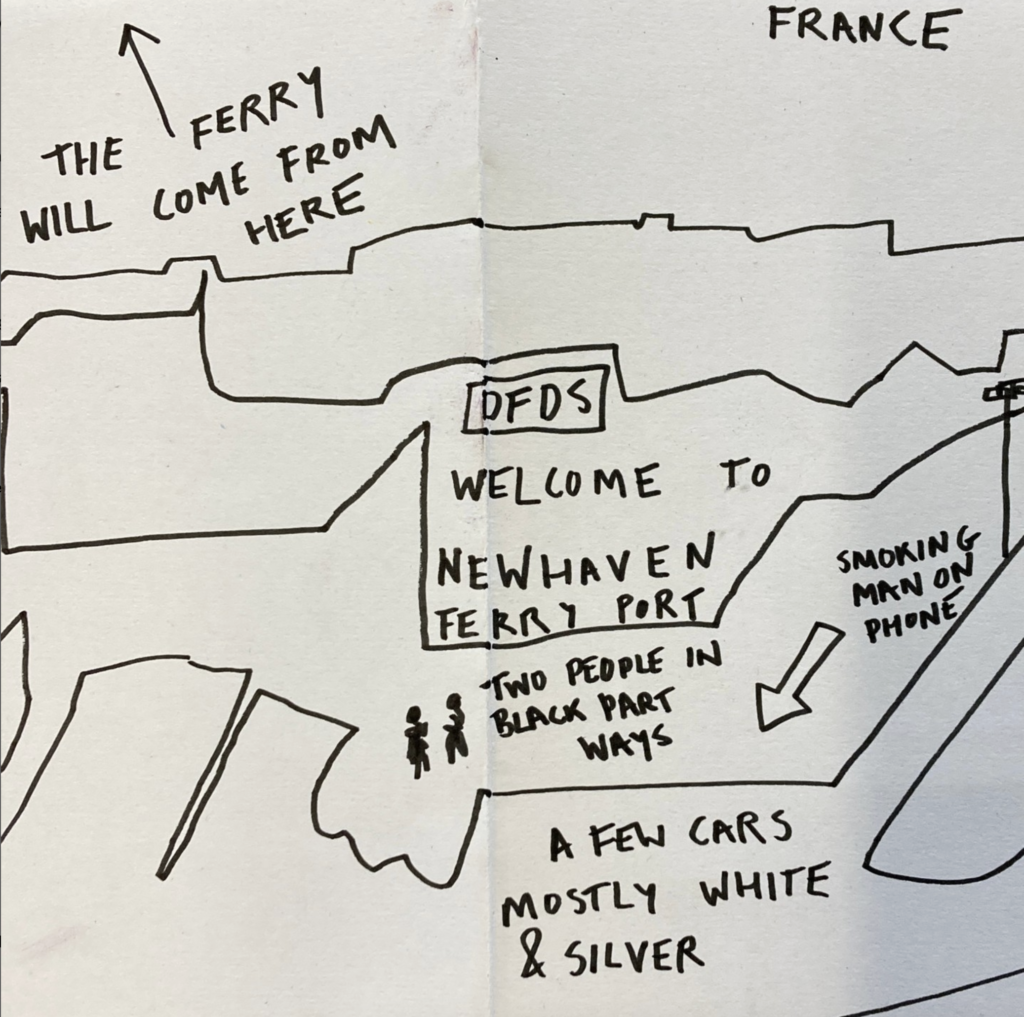 FRANCE
THE FERRY
WILL COME FROM
HERE
DFDS
WELCOME TO
NEWHAVEN
FERRY PORT
SMOKING
MAN ON
PHONE
TWO PEOPLE IN
BLACK PART
WAYS
A FEW CARS
MOSTLY WHITE
& SILVER